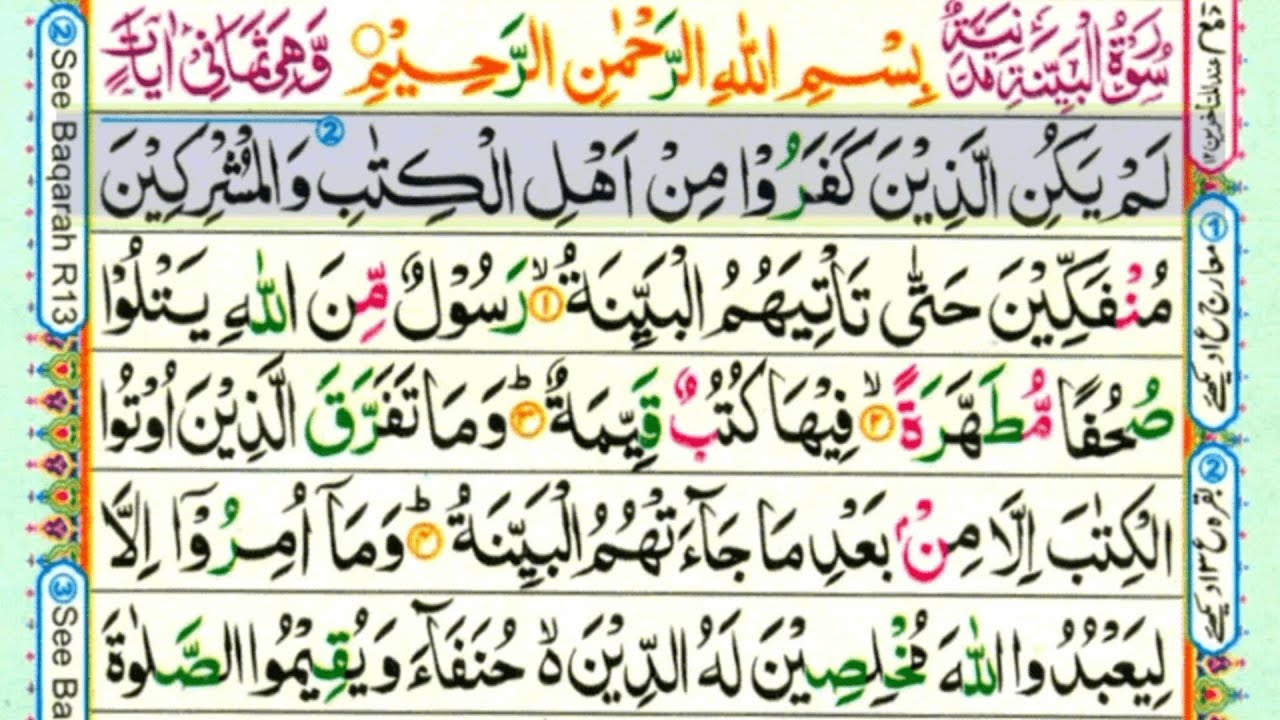 سُوْرَةُ الْبَيِّنَةِ مَدَنِيَّةٌ
بِسْمِ اللّٰهِ الرَّحْمٰنِ الرَّحِيْمِ
وَّهِيَ ثَمَانِيْ اٰيَاتٍ
لَمْ يَكُنِ الَّذِيْنَ كَفَرُوْا مِنْ اَهْلِ الْكِتٰبِ وَالْمُشْرِكِيْنَ ②
مُنْفَكِّيْنَ حَتّٰى تَاْتِيَهُمُ الْبَيِّنَةُ ۙ﴿۱﴾ رَسُوْلٌ مِّنَ اللّٰهِ يَتْلُوْا
صُحُفًا مُّطَهَّرَةً ۙ﴿۲﴾ فِيْهَا كُتُبٌ قَيِّمَةٌ ؕ﴿۳﴾ وَمَا تَفَرَّقَ الَّذِيْنَ اُوْتُوا
الْكِتٰبَ اِلَّا مِنْۢ بَعْدِ مَا جَآءَتْهُمُ الْبَيِّنَةُ ؕ﴿۴﴾ وَمَاۤ اُمِرُوْۤا اِلَّا
لِيَعْبُدُوا اللّٰهَ مُخْلِصِيْنَ لَهُ الدِّيْنَ ۙ۬ حُنَفَآءَ وَيُقِيْمُوا الصَّلٰوةَ
② See Baqarah R13
③ See Ba
عند المتأخرين ۱۲
① معارج ع ۱ دیکھئے
② بقرہ ع ۱۳ دیکھئے